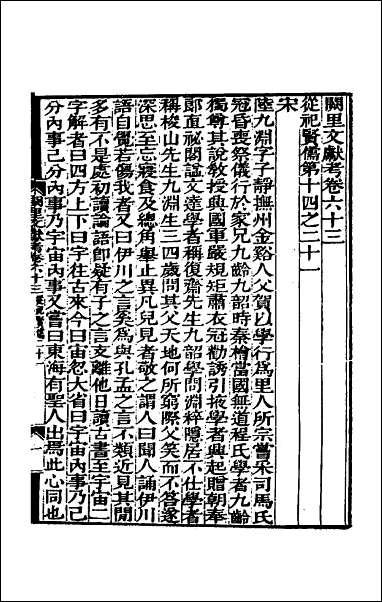 闕里文獻考卷六十三
從祀賢儒第十四之二十一
宋
陸九淵字子靜撫州金谿人父賀以學行爲里人所宗嘗采司馬氏
冠昏喪祭儀行於家兄九齡九韶時秦檜當國無道程氏學者九齡
獨尊其說教授興國軍嚴規矩肅衣冠勸誘引掖學者興起贈朝奉
郎直祕閣諡文達學者稱復齋先生九韶學問淵粹隱居不仕學者
稱梭山先生九淵生三四歲問其父天地何所窮際父笑而不答遂
深思至忘寢食及總角舉止異凡兒見者敬之謂人曰聞人誦伊川
語自覺若傷我者又曰伊川之言奚爲與孔孟之言不類近見其閒
多有不是處初讀論語即疑有子之言支離他日讀古書至宇宙二
字解者曰四方上下曰宇往古來今曰宙忽大省曰宇宙內事乃己
分內事己分內事乃宇宙內事又嘗曰東海有聖人出焉此心同也
闕里文獻考卷六十三
一